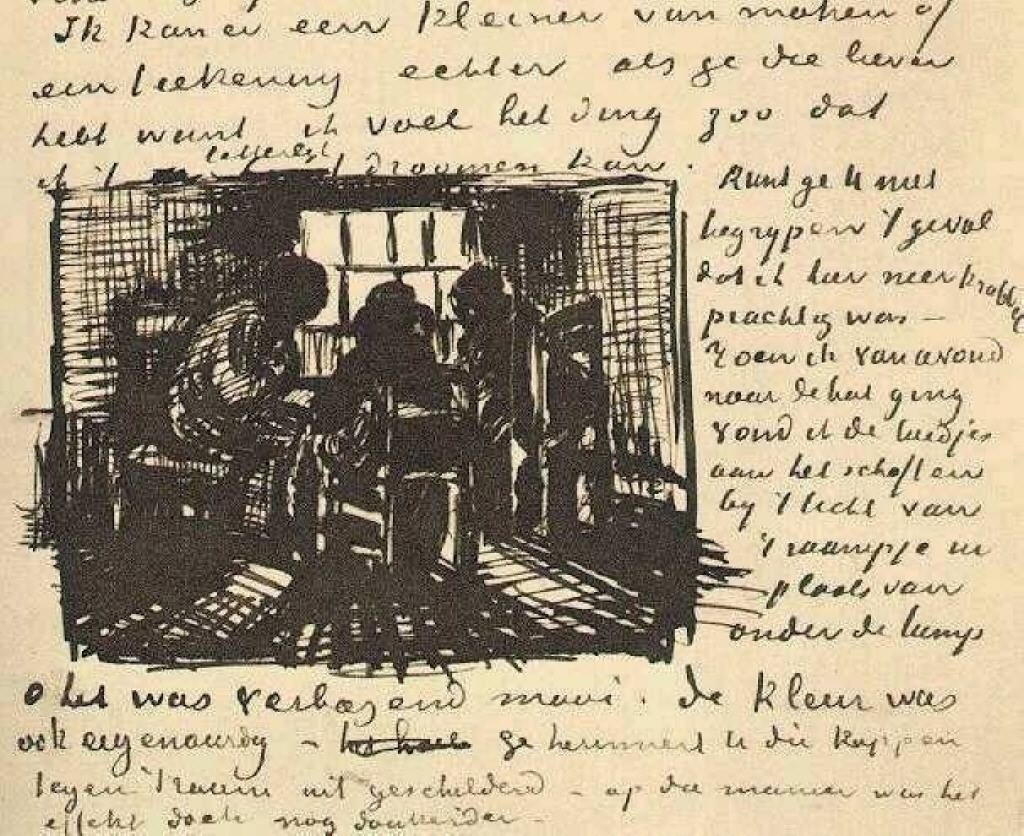 Ik kan er een kleiner van maken of
een teekening echter als ge die liever
hebt want ik voel het ding zoo dat
ik 't letterlijk droomen kan.
Kunt ge U niet
begrypen 't geval
dat ik hier neerkrabbel
prachtig was –
Toen ik van avond
naar de hut ging
vond ik de luidjes
aan het schoften
by 't licht van
't raampje in
plaats van
onder de lamp
O het was verbazend mooi. de kleur was
ook eigenaardig – ge herinnert U die koppen
tegen 't raam uit geschilderd – op die manier was het
effekt doch nog donkerder –